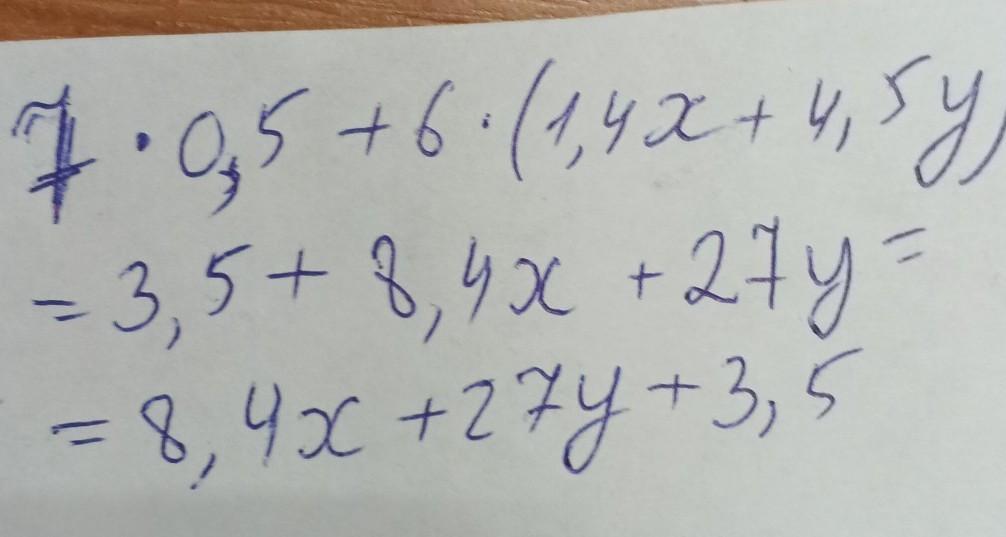 7 · 0,5 + 6 · (1,4x + 4,5y)
= 3,5 + 8,4x + 27y =
= 8,4x + 27y + 3,5